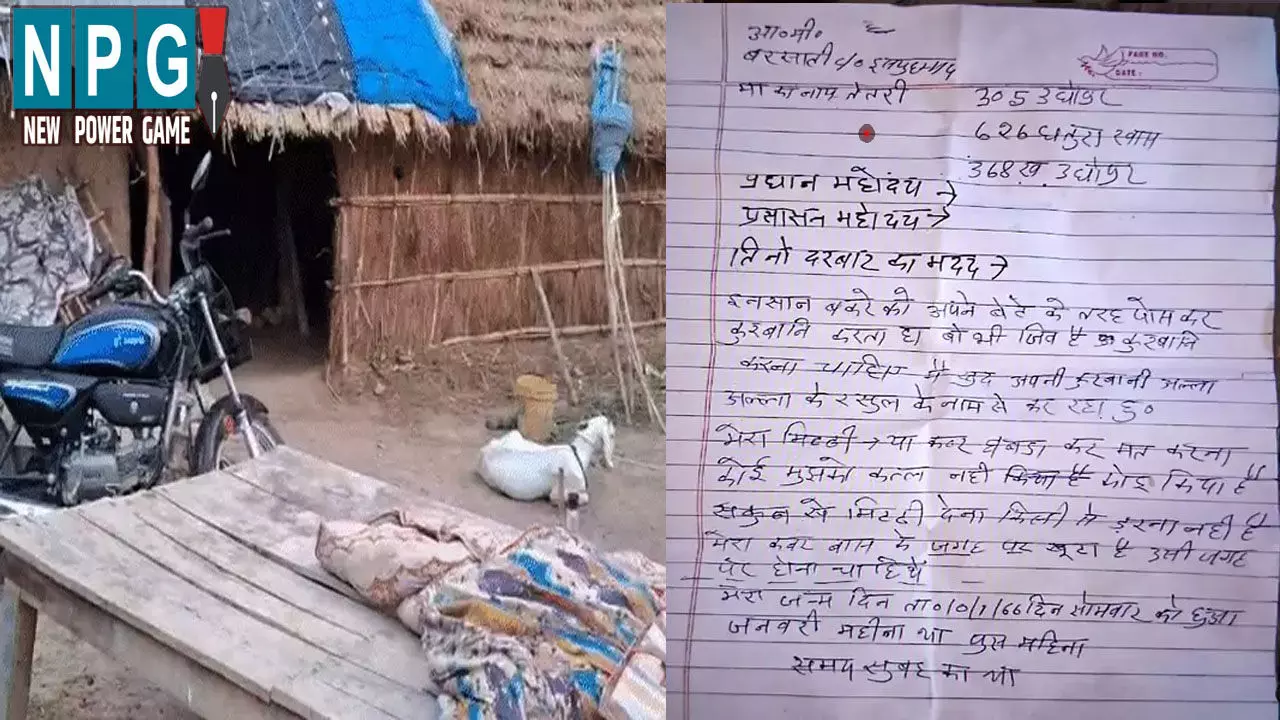 NPG
NEW POWER GAME
PAGE NO.
DATE:
बरसाती
मा का नाम तेतरी
305 उद्योपुर
626 धतुरा खाम
368ख. उद्योपुर
प्रधान महोदय →
प्रसासन महोदय →
तिनो दरबार का मदद →
इनसान बकरे को अपने बेटे के तरह पोस कर
कुरबानि करता हा वो भी जिव है कुरबानि
करना चाहिए मै खुद अपनी कुरबानी अल्ला
अल्ला के रसुल के नाम से कर रहा हु०
मेरा मिटटी → या कबर घबडा कर मत करना
कोई मुझको कत्ल नही किया है
सकुन से मिटटी देना किसी से डरना नही है
मेरा कबर बास के जगह पर खूटा है उसी जगह
पर होना चाहिये
मेरा जन्म दिन ता०/0/1/66 दिन सोमवार को हुआ
जनवरी महीना था पुस महिना
समय सुबह का था